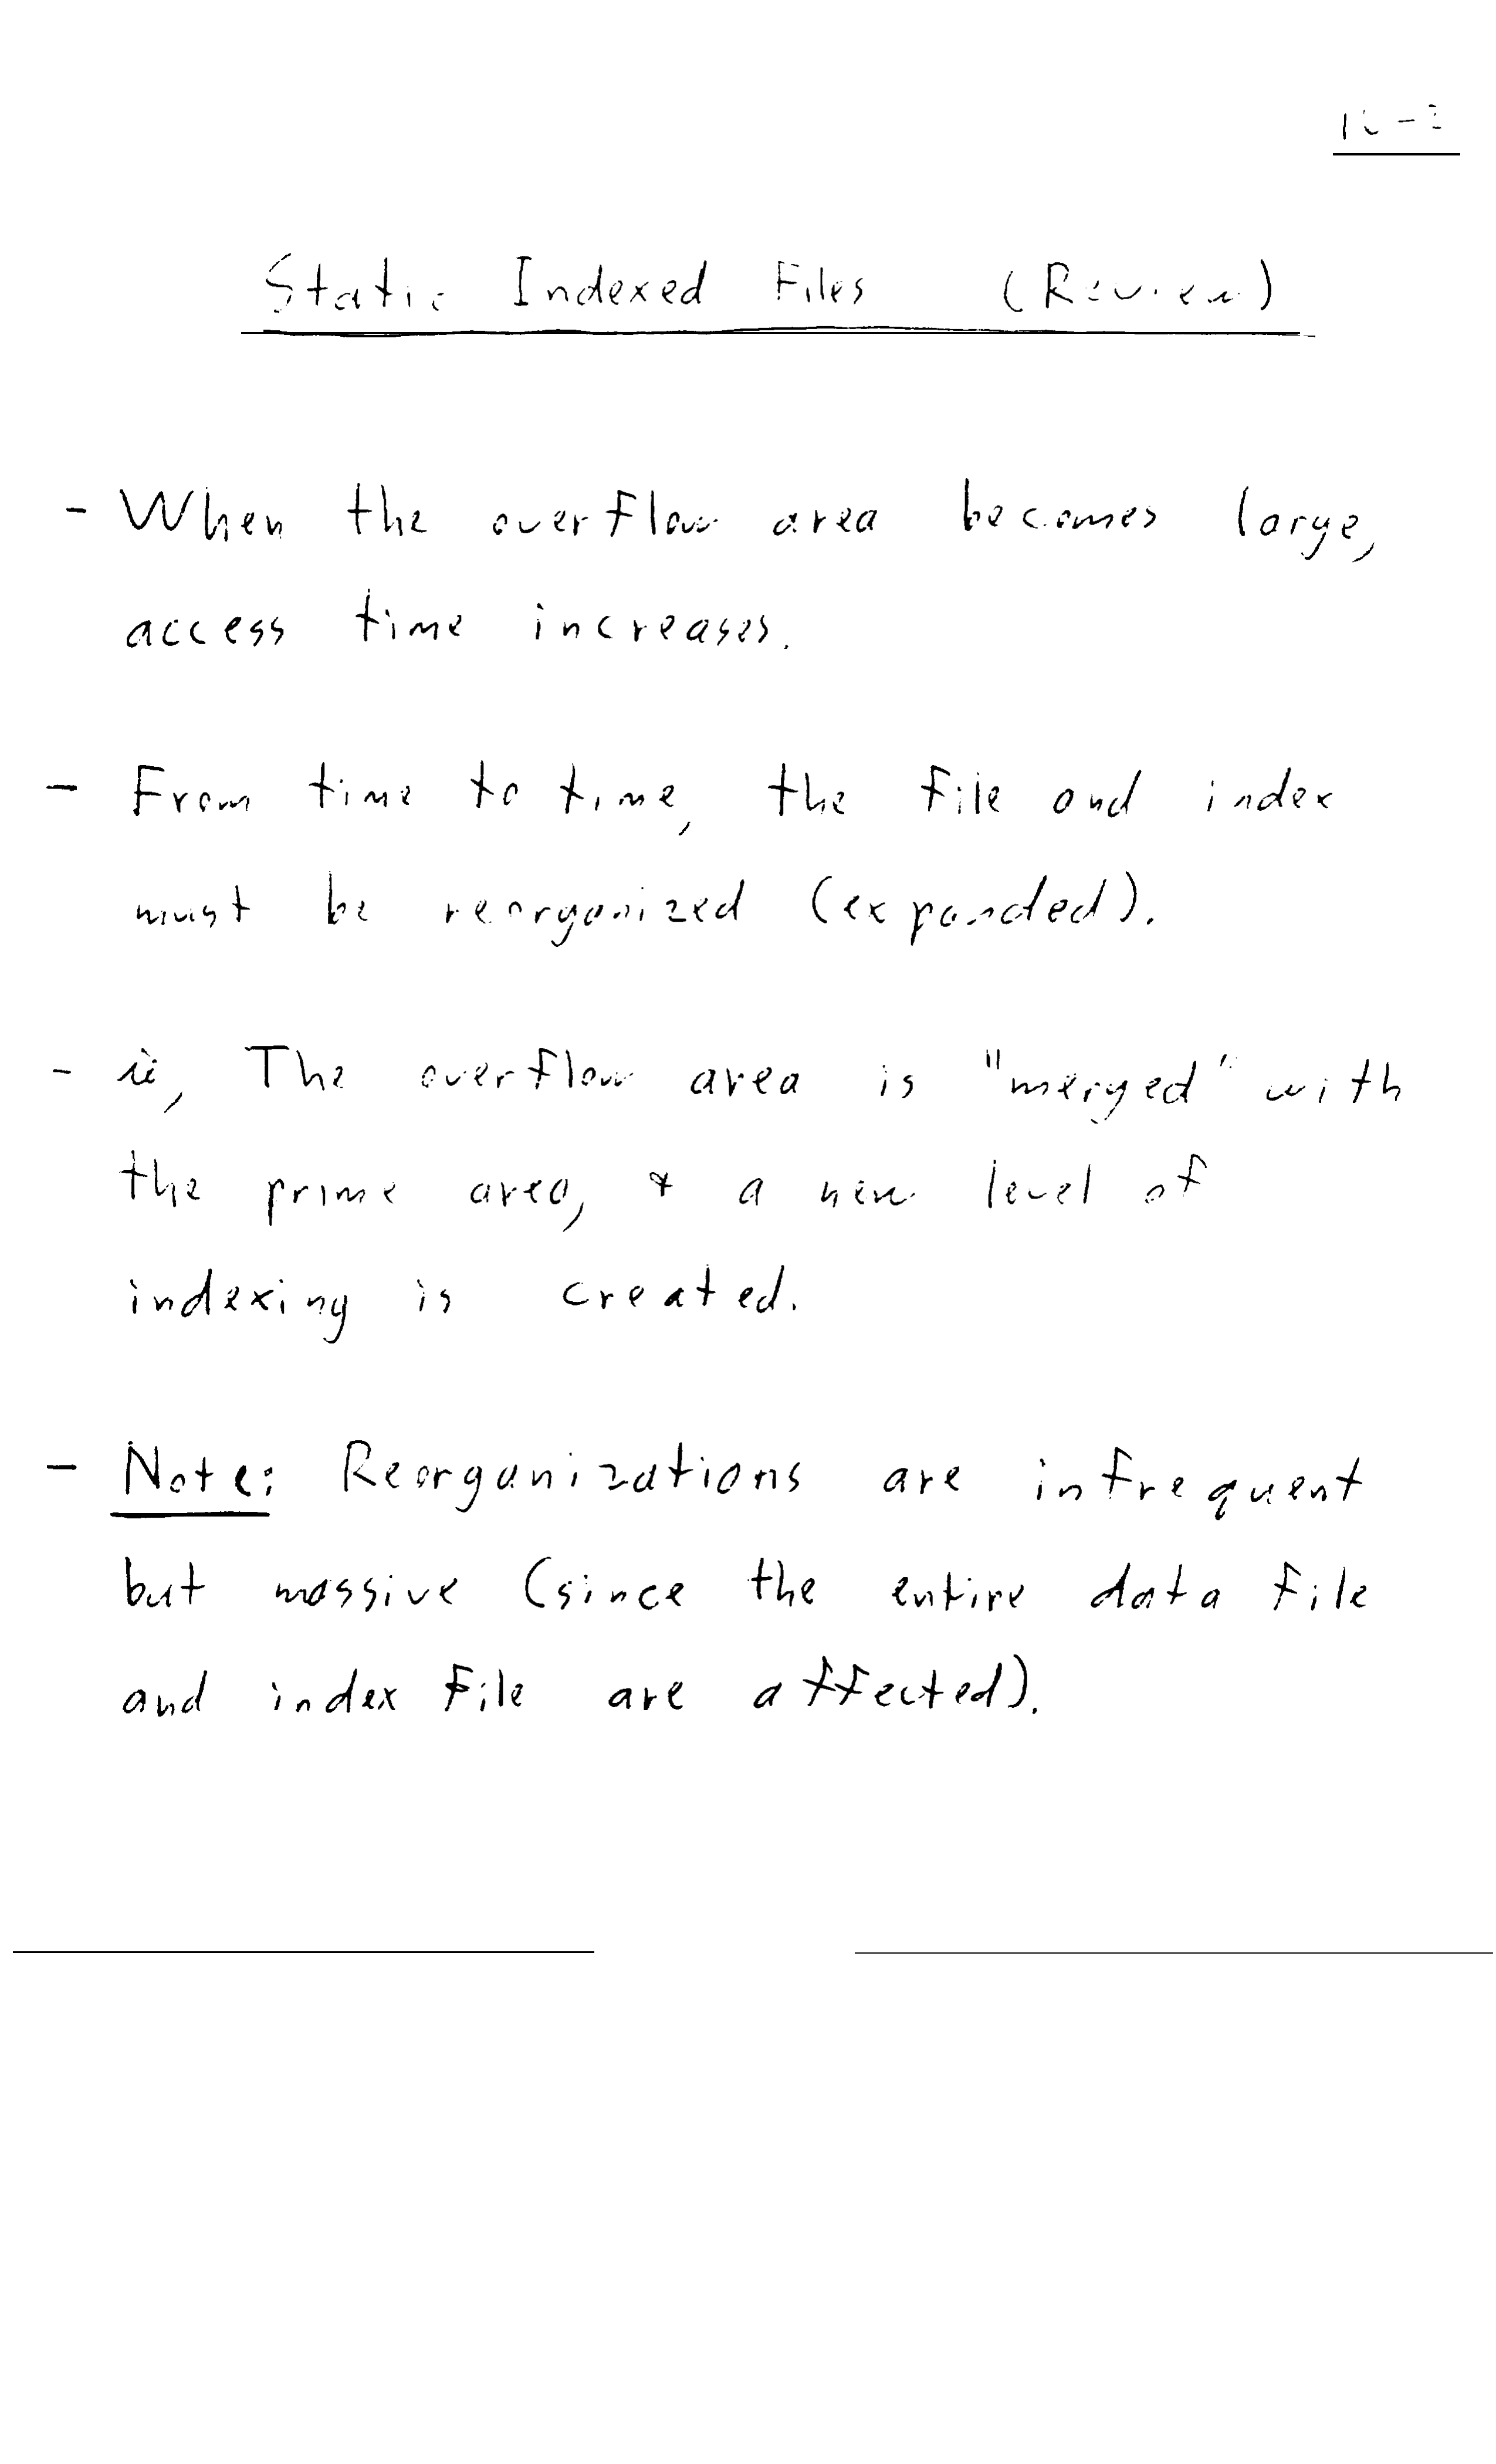 Static Indexed Files (Review)
- When the overflow area becomes large,
access time increases.
- From time to time, the file and index
must be reorganized (expanded).
- ie, The overflow area is "merged" with
the prime area, & a new level of
indexing is created.
- Note: Reorganizations are infrequent
but massive (since the entire data file
and index file are affected).